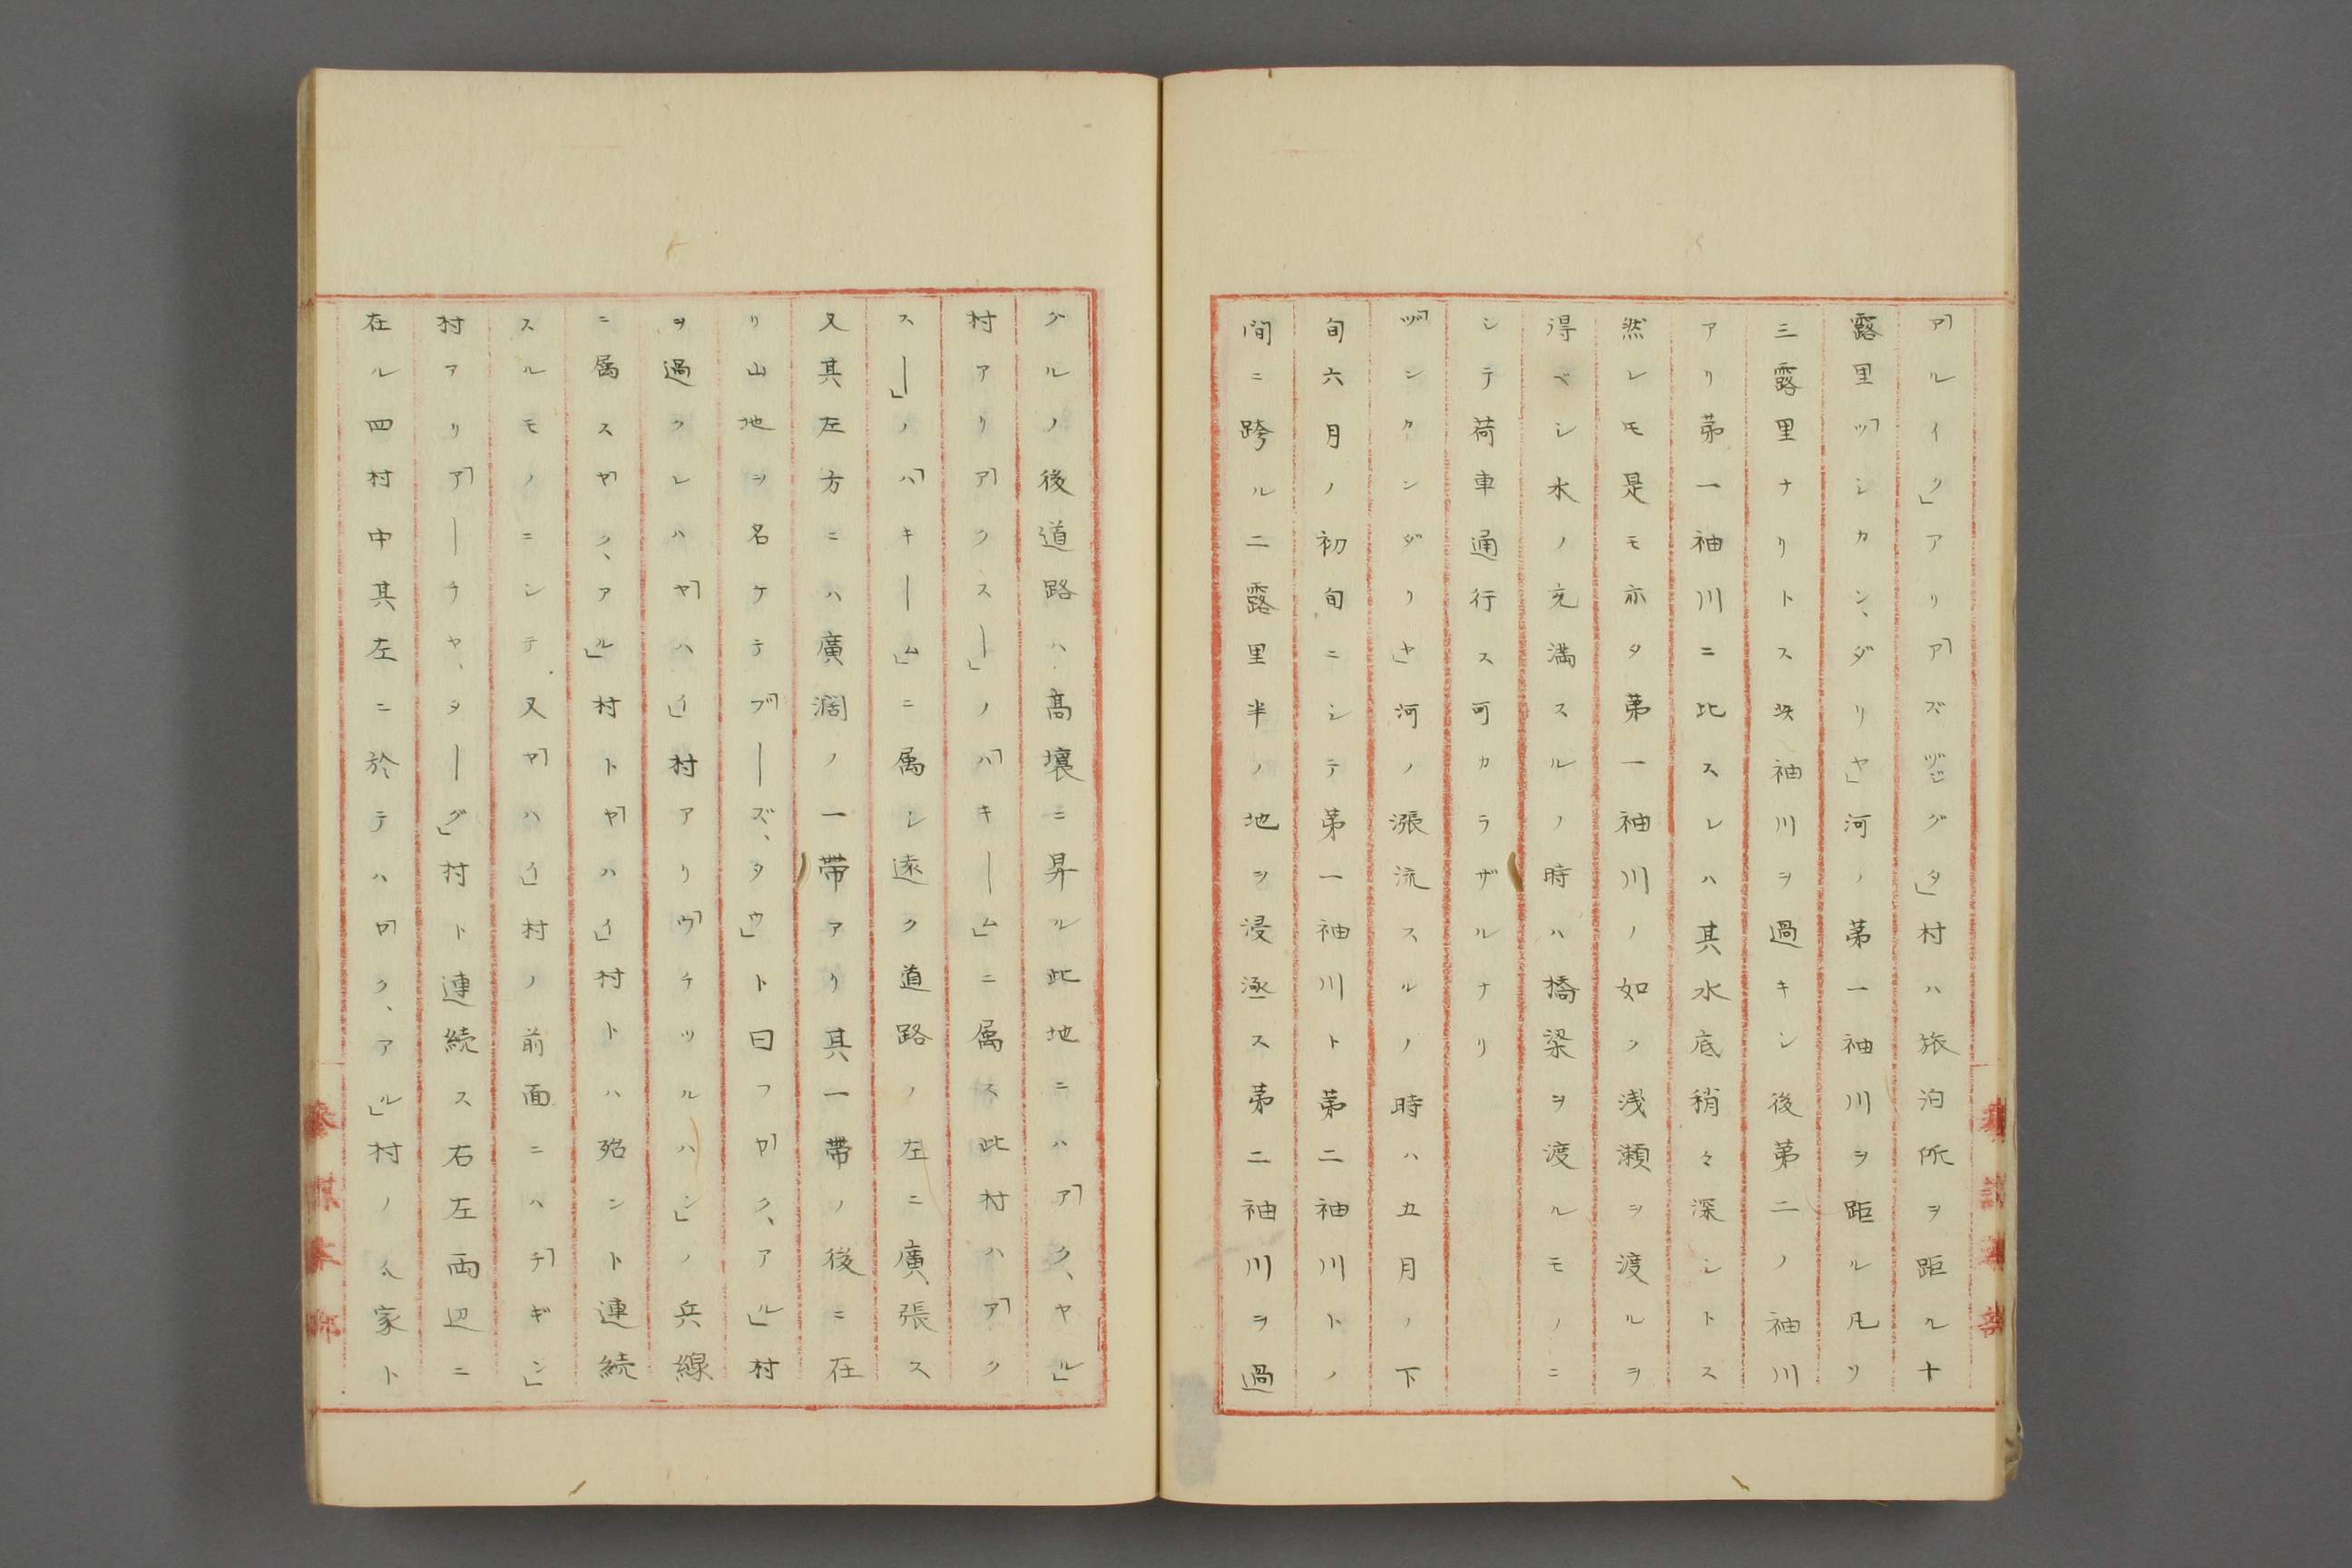 「アルイク」アリ「アズヅジグタ」村ハ旅泊所ヲ距ル十
露里「ツンカン、ダリヤ」河ノ第一袖川ヲ距ル凡ソ
三露里ナリトス此袖川ヲ過キシ後第二ノ袖川
アリ第一袖川ニ比スレハ其水底稍々深シトス
然レモ是モ亦タ第一袖川ノ如ク浅瀬ヲ渡ルヲ
得ベシ水ノ充満スルノ時ハ橋梁ヲ渡ルモノニ
シテ荷車通行ス可カラザルナリ
「ヅンカンダリヤ」河ノ漲流スルノ時ハ五月ノ下
旬六月ノ初旬ニシテ第一袖川ト第二袖川トノ
間ニ跨ル二露里半ノ地ヲ浸 ス第二袖川ヲ過
グルノ後道路ハ高壌ニ昇ル此地ニハ「アク、ヤル」
村アリ「アクスー」ノ「ハキーム」ニ属ス此村ハ「アク
スー」ノ「ハキーム」ニ属シ遠ク道路ノ左ニ廣張ス
又其左方ニハ廣濶ノ一帯アリ其一帯ノ後ニ在
リ山地ヲ名ケテ「ブーズ、タウ」ト曰フ「ヤク、アル」村
ヲ過クレハ「ヤハイ」村アリ「ウチツルハン」ノ兵線
ニ属ス「ヤク、アル」村ト「ヤハイ」村トハ殆ント連続
スルモノニシテ又「ヤハイ」村ノ前面ニハ「チギン」
村アリ「アーチヤ、ターグ」村ト連続ス右左両辺ニ
在ル四村中其左ニ於テハ「ヤク、アル」村ノ人家ト
参謀本部
参謀本部